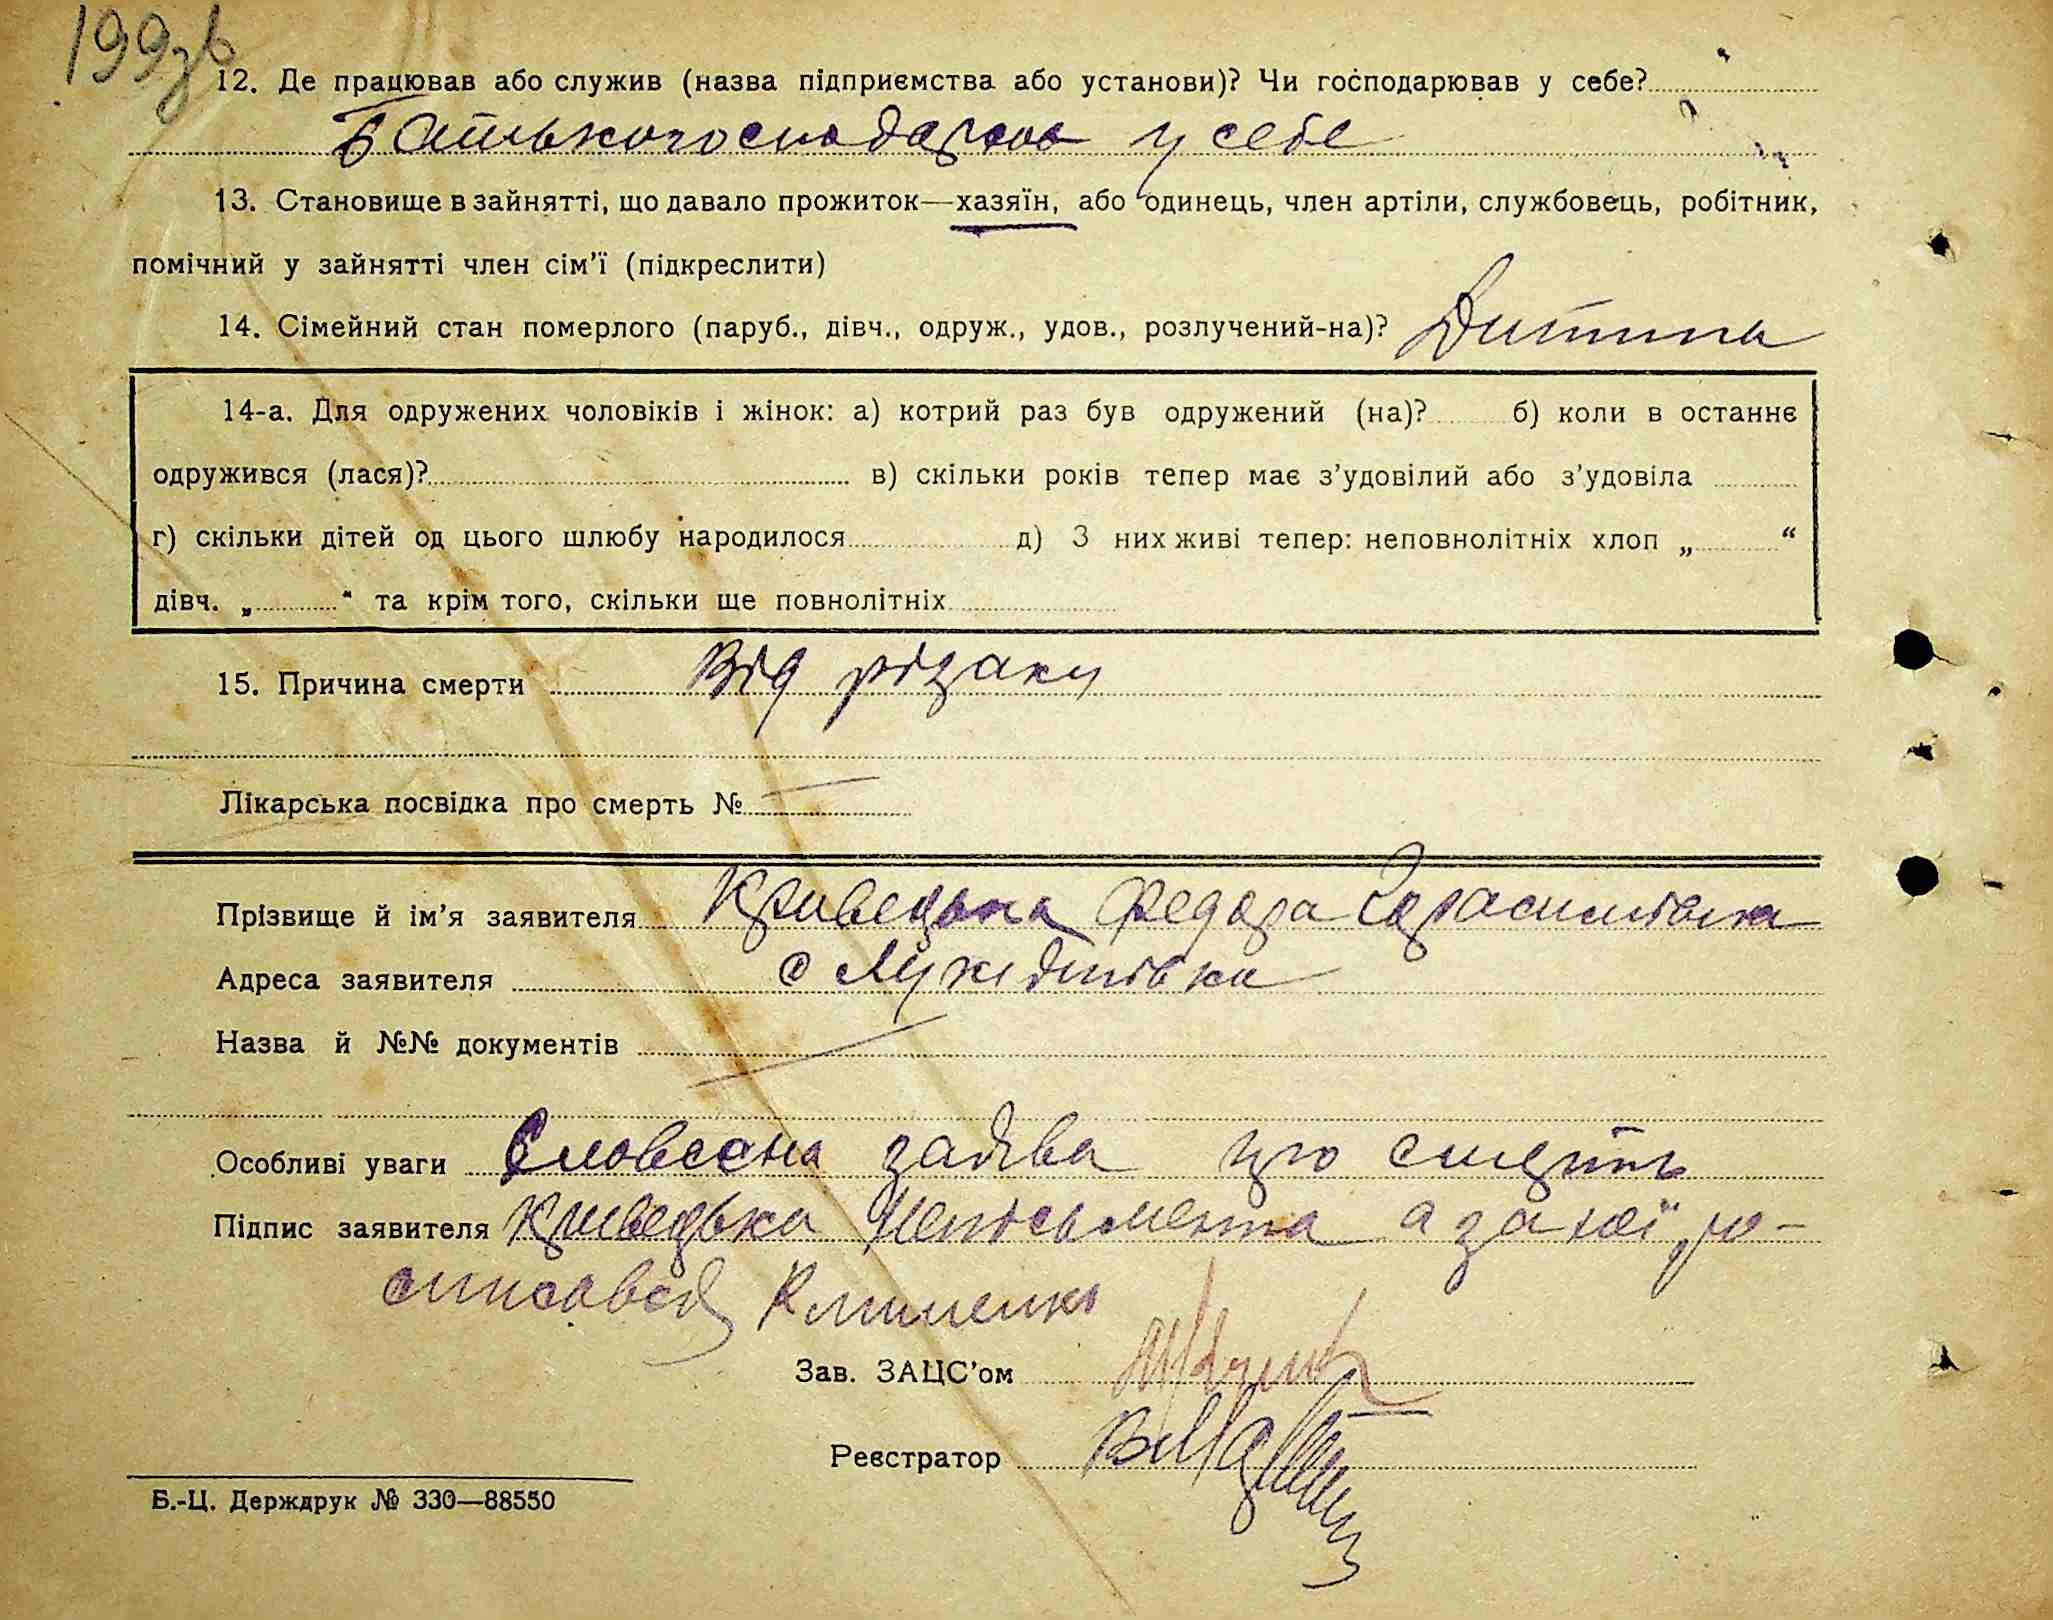 199 зв
12. Де працював або служив (назва підприємства або установи)? Чи господарював у себе?
Батько господарює у себе
13. Становище в зайнятті, що давало прожиток—хазяїн, або одинець, член артіли, службовець, робітник,
помічний у зайнятті член сім'ї (підкреслити)
14. Сімейний стан померлого (паруб., дівч., одруж., удов., розлучений-на)? Дитина
14-а. Для одружених чоловіків і жінок: а) котрий раз був одружений (на)? б) коли в останнє
одружився (лася)? в) скільки років тепер має з'удовілий або з'удовіла
г) скільки дітей од цього шлюбу народилося д) З них живі тепер: неповнолітніх хлоп „ “
дівч. „ “ та крім того, скільки ще повнолітніх
15. Причина смерти Від різаки
Лікарська посвідка про смерть №
Прізвище й ім'я заявителя Кривецька Федора Гарасимівна
Адреса заявителя с
Назва й №№ документів
Особливі уваги Словесна заява про смерть
Підпис заявителя Кривецька неписьменна а за неї ро-
списався Клименко
Зав. ЗАЦС'ом
Реєстратор
Б.-Ц. Держдрук № 330—88550